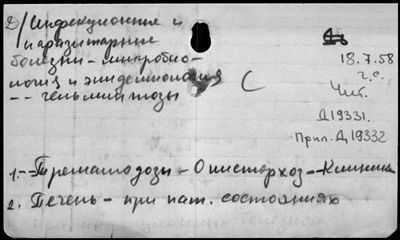 2/ Инфекционные и
паразитарные
болезни - микробио-
логия и эпидемиология
-- гельминтозы
С
18.7.58
г.с.
Чит.
Д19331.
Прил. Д19332
1. - Трематодозы - Описторхоз - Клиника
2. Печень - при пат. состояниях